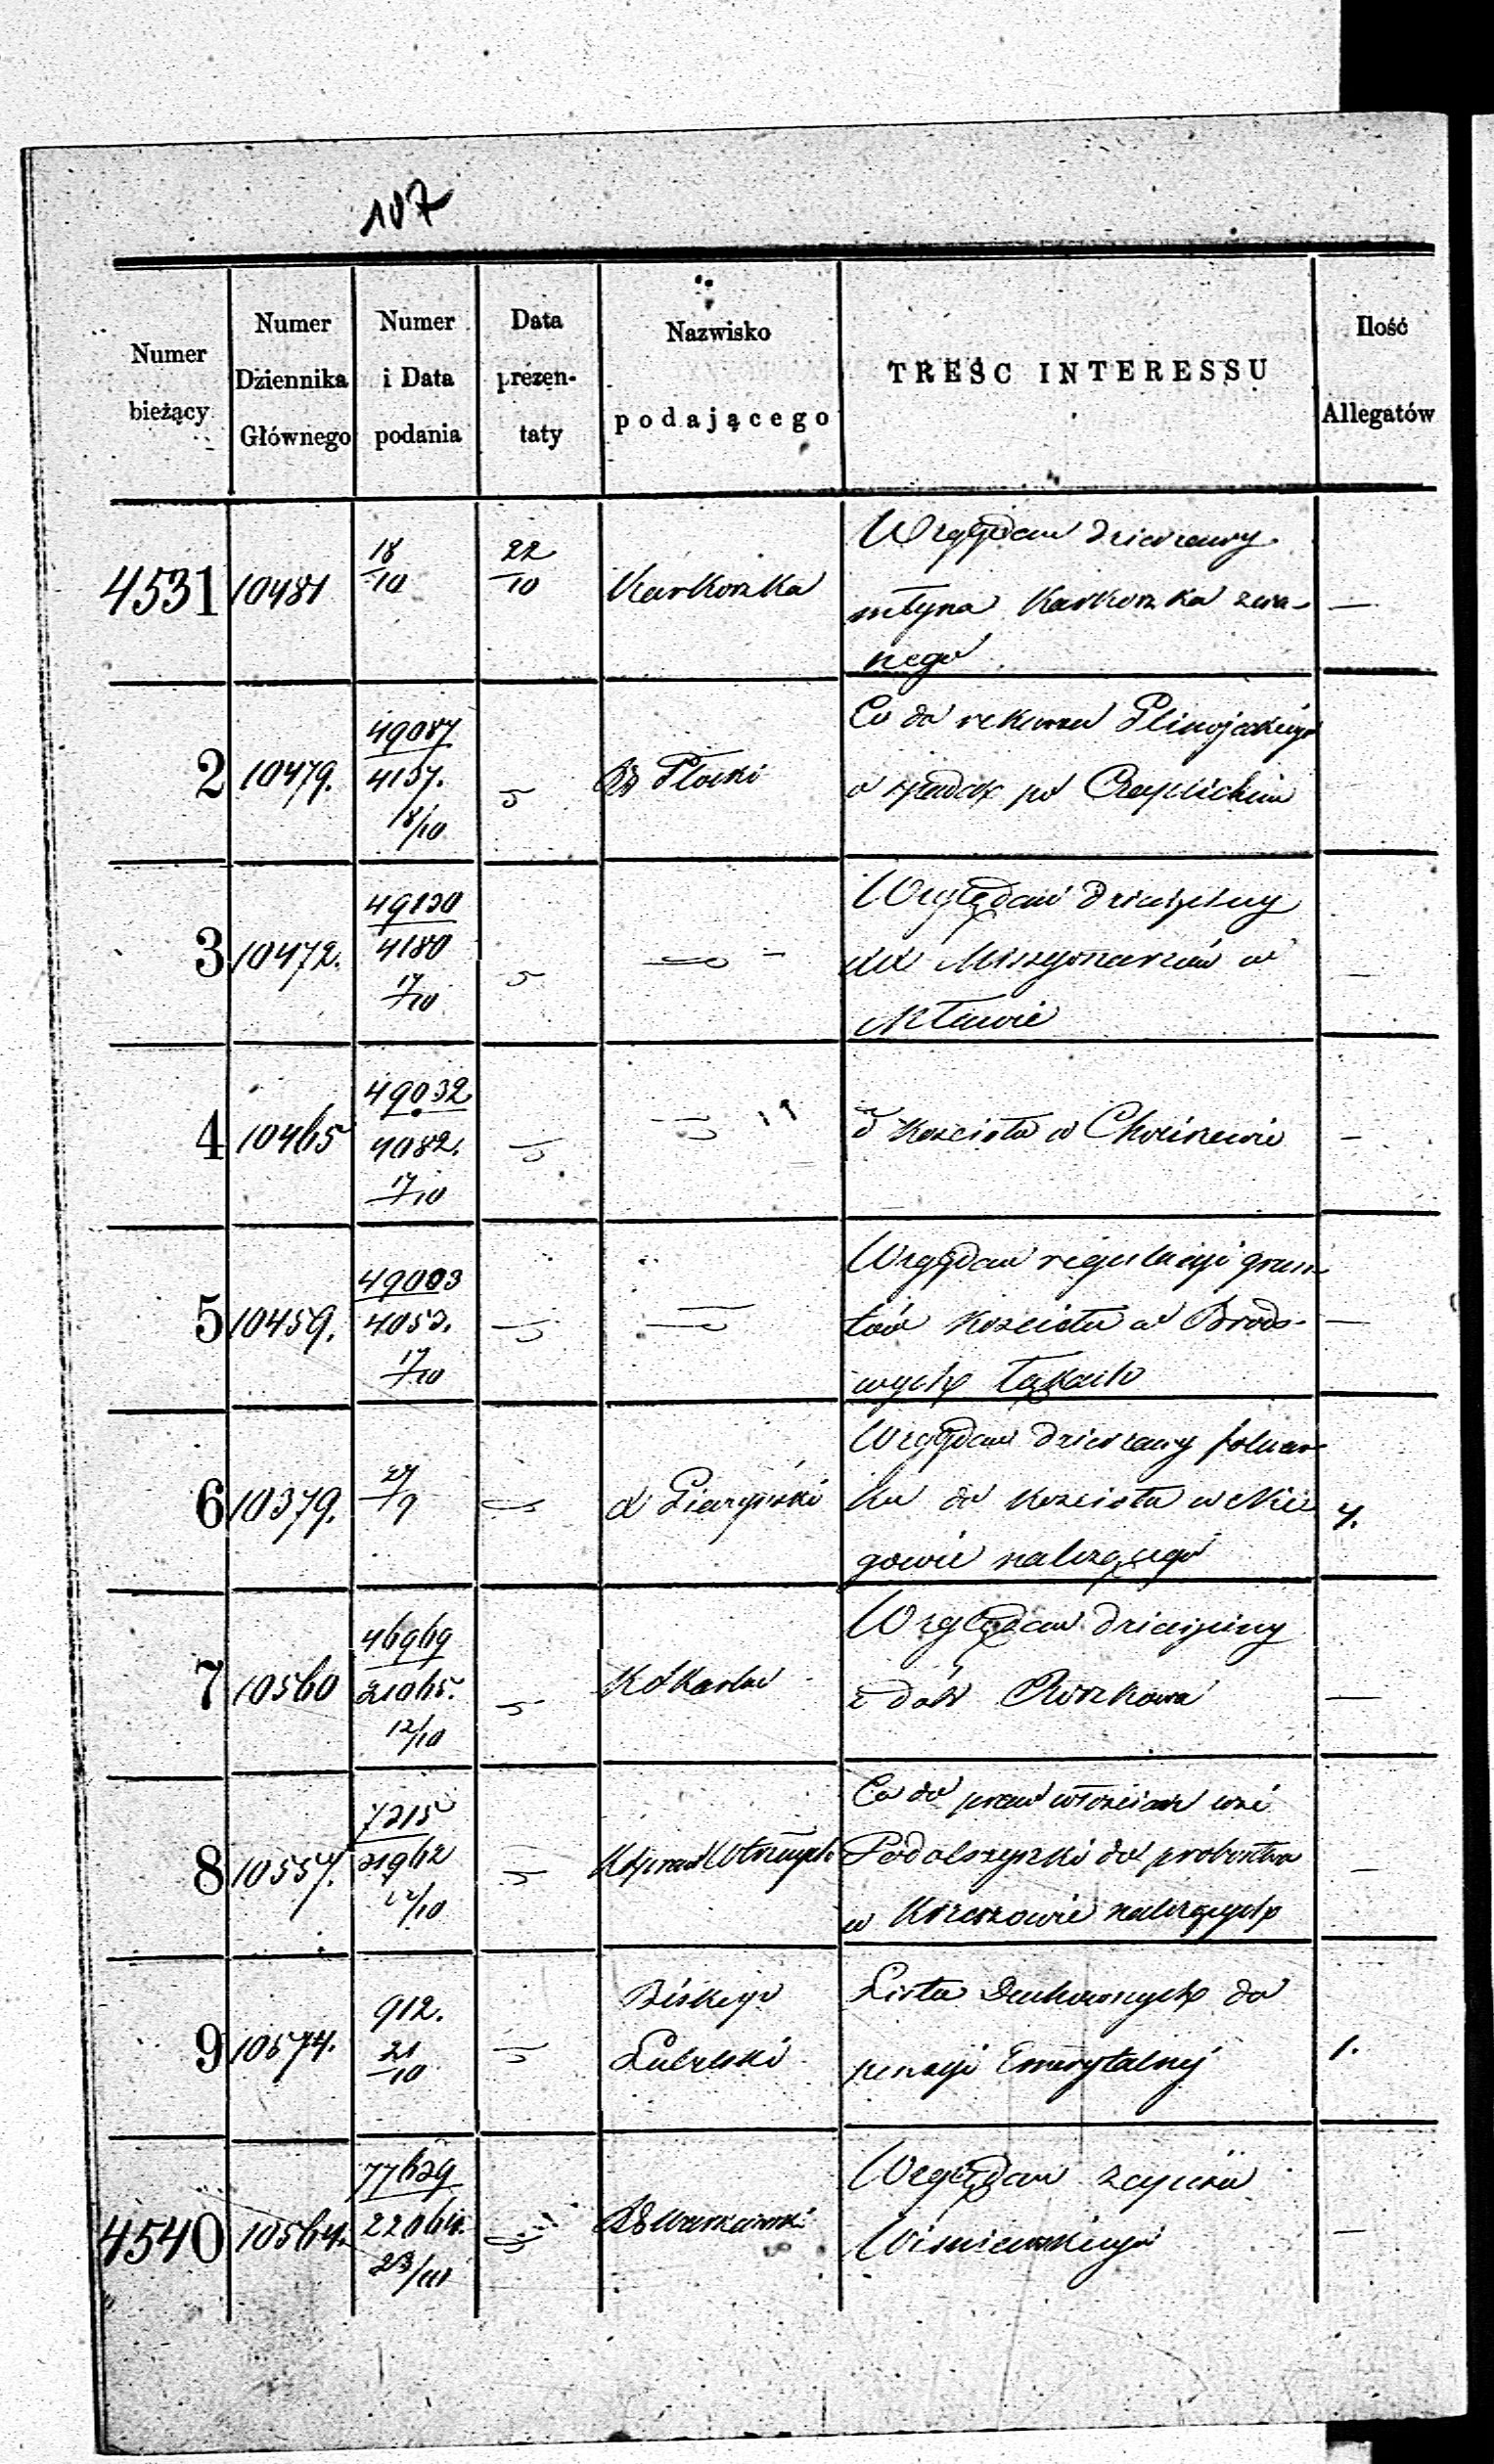 107
Numer bieżący
Numer Dziennika Głównego
Numer i Data podania
Data prezen- taty
Nazwisko podającego
TREŚC INTERESSU
Ilość Allegatów
4531 10481 18/10 22/10 Karkoszka
Względem dzierżawy
młyna Karkoszka zwa-
nego —
2 10479. 49087 4157. 18/10 Płocki
Co do rekursu
o spadek po Czaplickim
3 10472. 49130 4180 17/10
Względem dziesięciny
XX Missyonarzów w
Mławie —
4 10465 49032 4082. 17/10
Kościoła w —
5 10459. 49003 4053. 17/10
Względem regulacyi grun-
tów Kościoła w Brodo-
wych Łąkach —
6 10379. 27/9 X
Względem dzierżawy folwar-
ku do Kościoła w Nie
gowie należącego 4.
7 10560 46969 21065. 12/10
Względem dziesięciny
z dóbr —
8 10557. 7215 21962 12/10
Co do praw włościan wsi
do probostwa
w Krzeszowie należących —
9 10574. 912. 21/10 Biskup
Lubelski
Lista Duchownych do
pensyi Emerytalnej 1.
4540 10564. 77629 22064. 23/10 Warszawski
Względem zapisu
Wiśniewskiego —